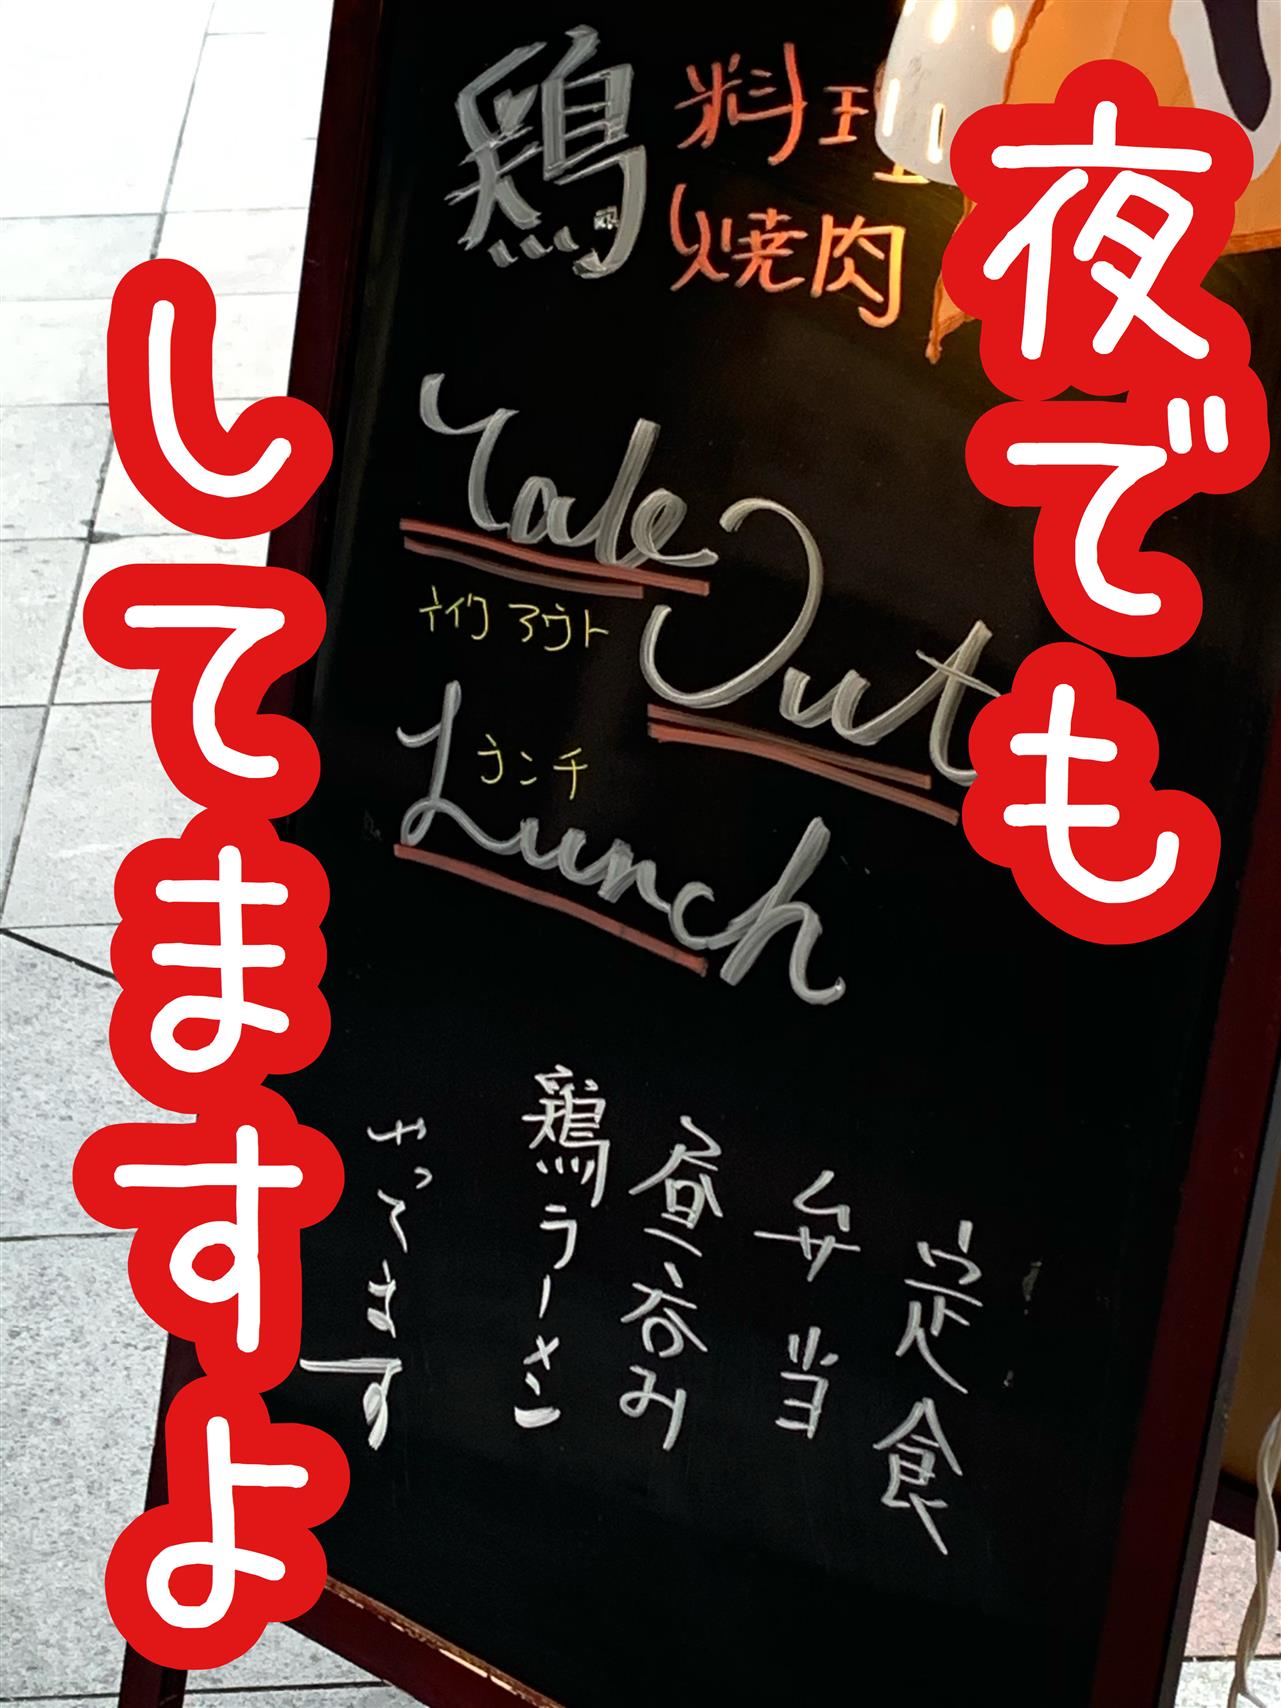 夜でも
してますよ
鶏料理
焼肉
Take Out
テイクアウト
Lunch
ランチ
定食
弁当
昼呑み
鶏ラーメン
やってます